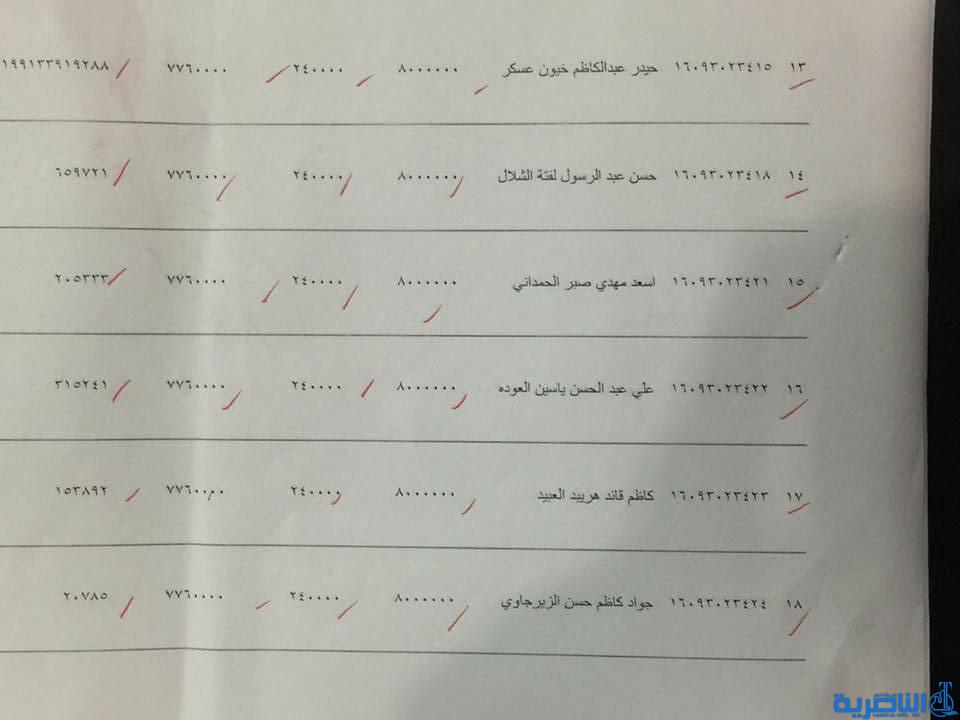 ١٣ ١٦٠٩٣٠٢٣٤١٥ حيدر عبدالكاظم خيون عسكر ٨٠٠٠٠٠٠ ٢٤٠٠٠٠ ٧٧٦٠٠٠٠ ١٩٩١٣٣٩١٩٢٨٨
١٤ ١٦٠٩٣٠٢٣٤١٨ حسن عبد الرسول لفتة الشلال ٨٠٠٠٠٠٠ ٢٤٠٠٠٠ ٧٧٦٠٠٠٠ ٦٥٩٧٢١
١٥ ١٦٠٩٣٠٢٣٤٢١ اسعد مهدي صبر الحمداني ٨٠٠٠٠٠٠ ٢٤٠٠٠٠ ٧٧٦٠٠٠٠ ٢٠٥٣٣٣
١٦ ١٦٠٩٣٠٢٣٤٢٢ علي عبد الحسن ياسين العوده ٨٠٠٠٠٠٠ ٢٤٠٠٠٠ ٧٧٦٠٠٠٠ ٣١٥٢٤١
١٧ ١٦٠٩٣٠٢٣٤٢٣ كاظم قائد هريبد العبيد ٨٠٠٠٠٠٠ ٢٤٠٠٠٠ ٧٧٦٠٠٠٠ ١٥٣٨٩٢
١٨ ١٦٠٩٣٠٢٣٤٢٤ جواد كاظم حسن الزيرجاوي ٨٠٠٠٠٠٠ ٢٤٠٠٠٠ ٧٧٦٠٠٠٠ ٢٠٧٨٥
الناصرية